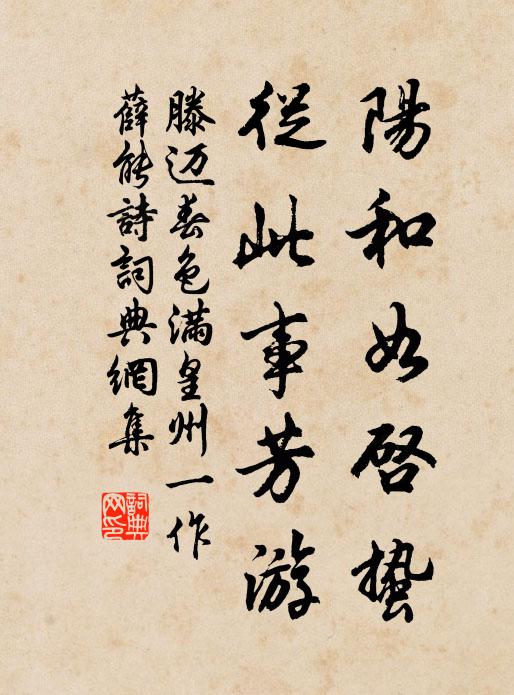 陽和如啓蟄
從此事芳游
滕迈春色滿皇州一作
薛能詩詞典網集
詞典网印